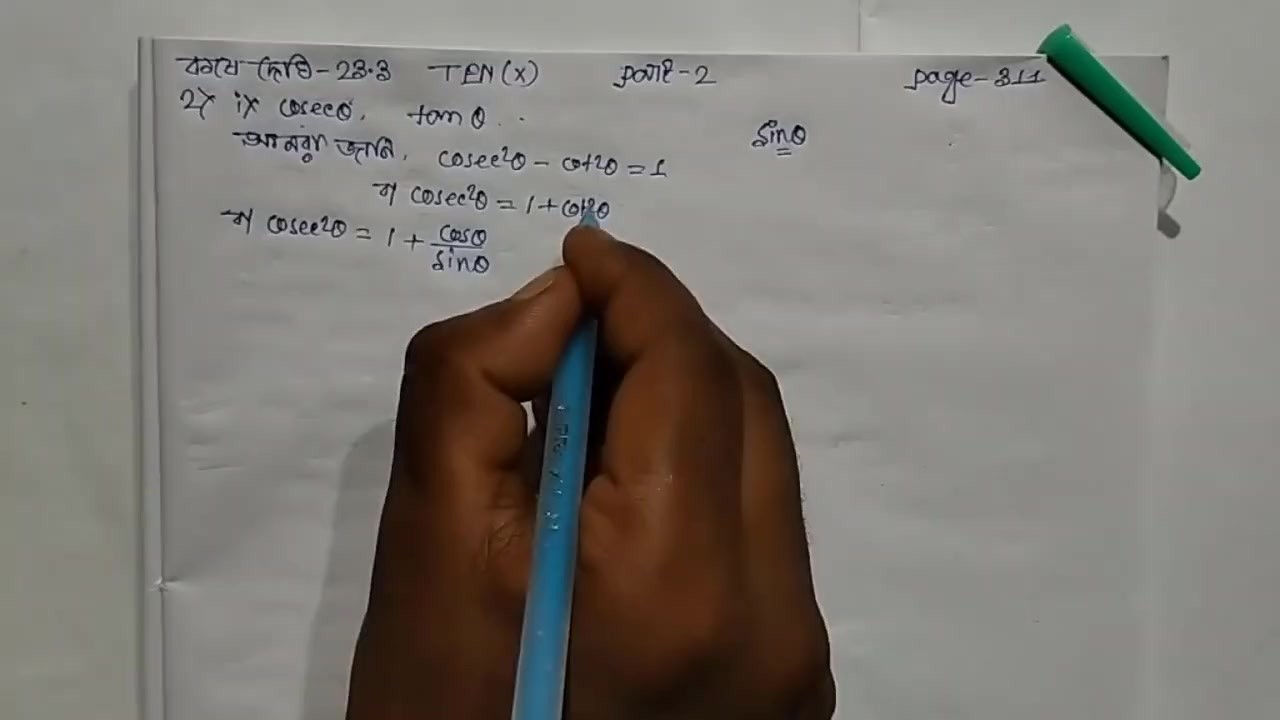 কষে দেখি-23.3 TEN(X) part-2 page-311
2) i) cosecθ, tanθ. sinθ
আমরা জানি, cosec²θ - cot²θ = 1
বা cosec²θ = 1 + cot²θ
বা cosec²θ = 1 + cosθ/sinθ